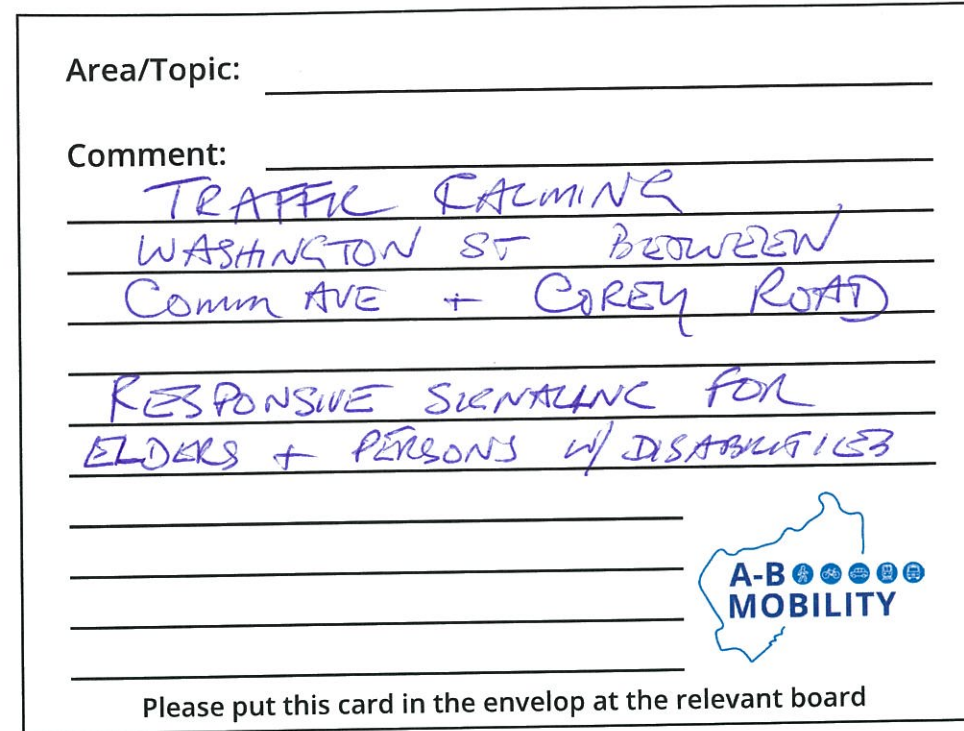 Area/Topic:
Comment:
TRAFFIC CALMING
WASHINGTON ST BETWEEN
Comm AVE + COREY ROAD
RESPONSIVE SIGNALING FOR
ELDERS + PERSONS W/ DISABILITIES
A-B
MOBILITY
Please put this card in the envelop at the relevant board